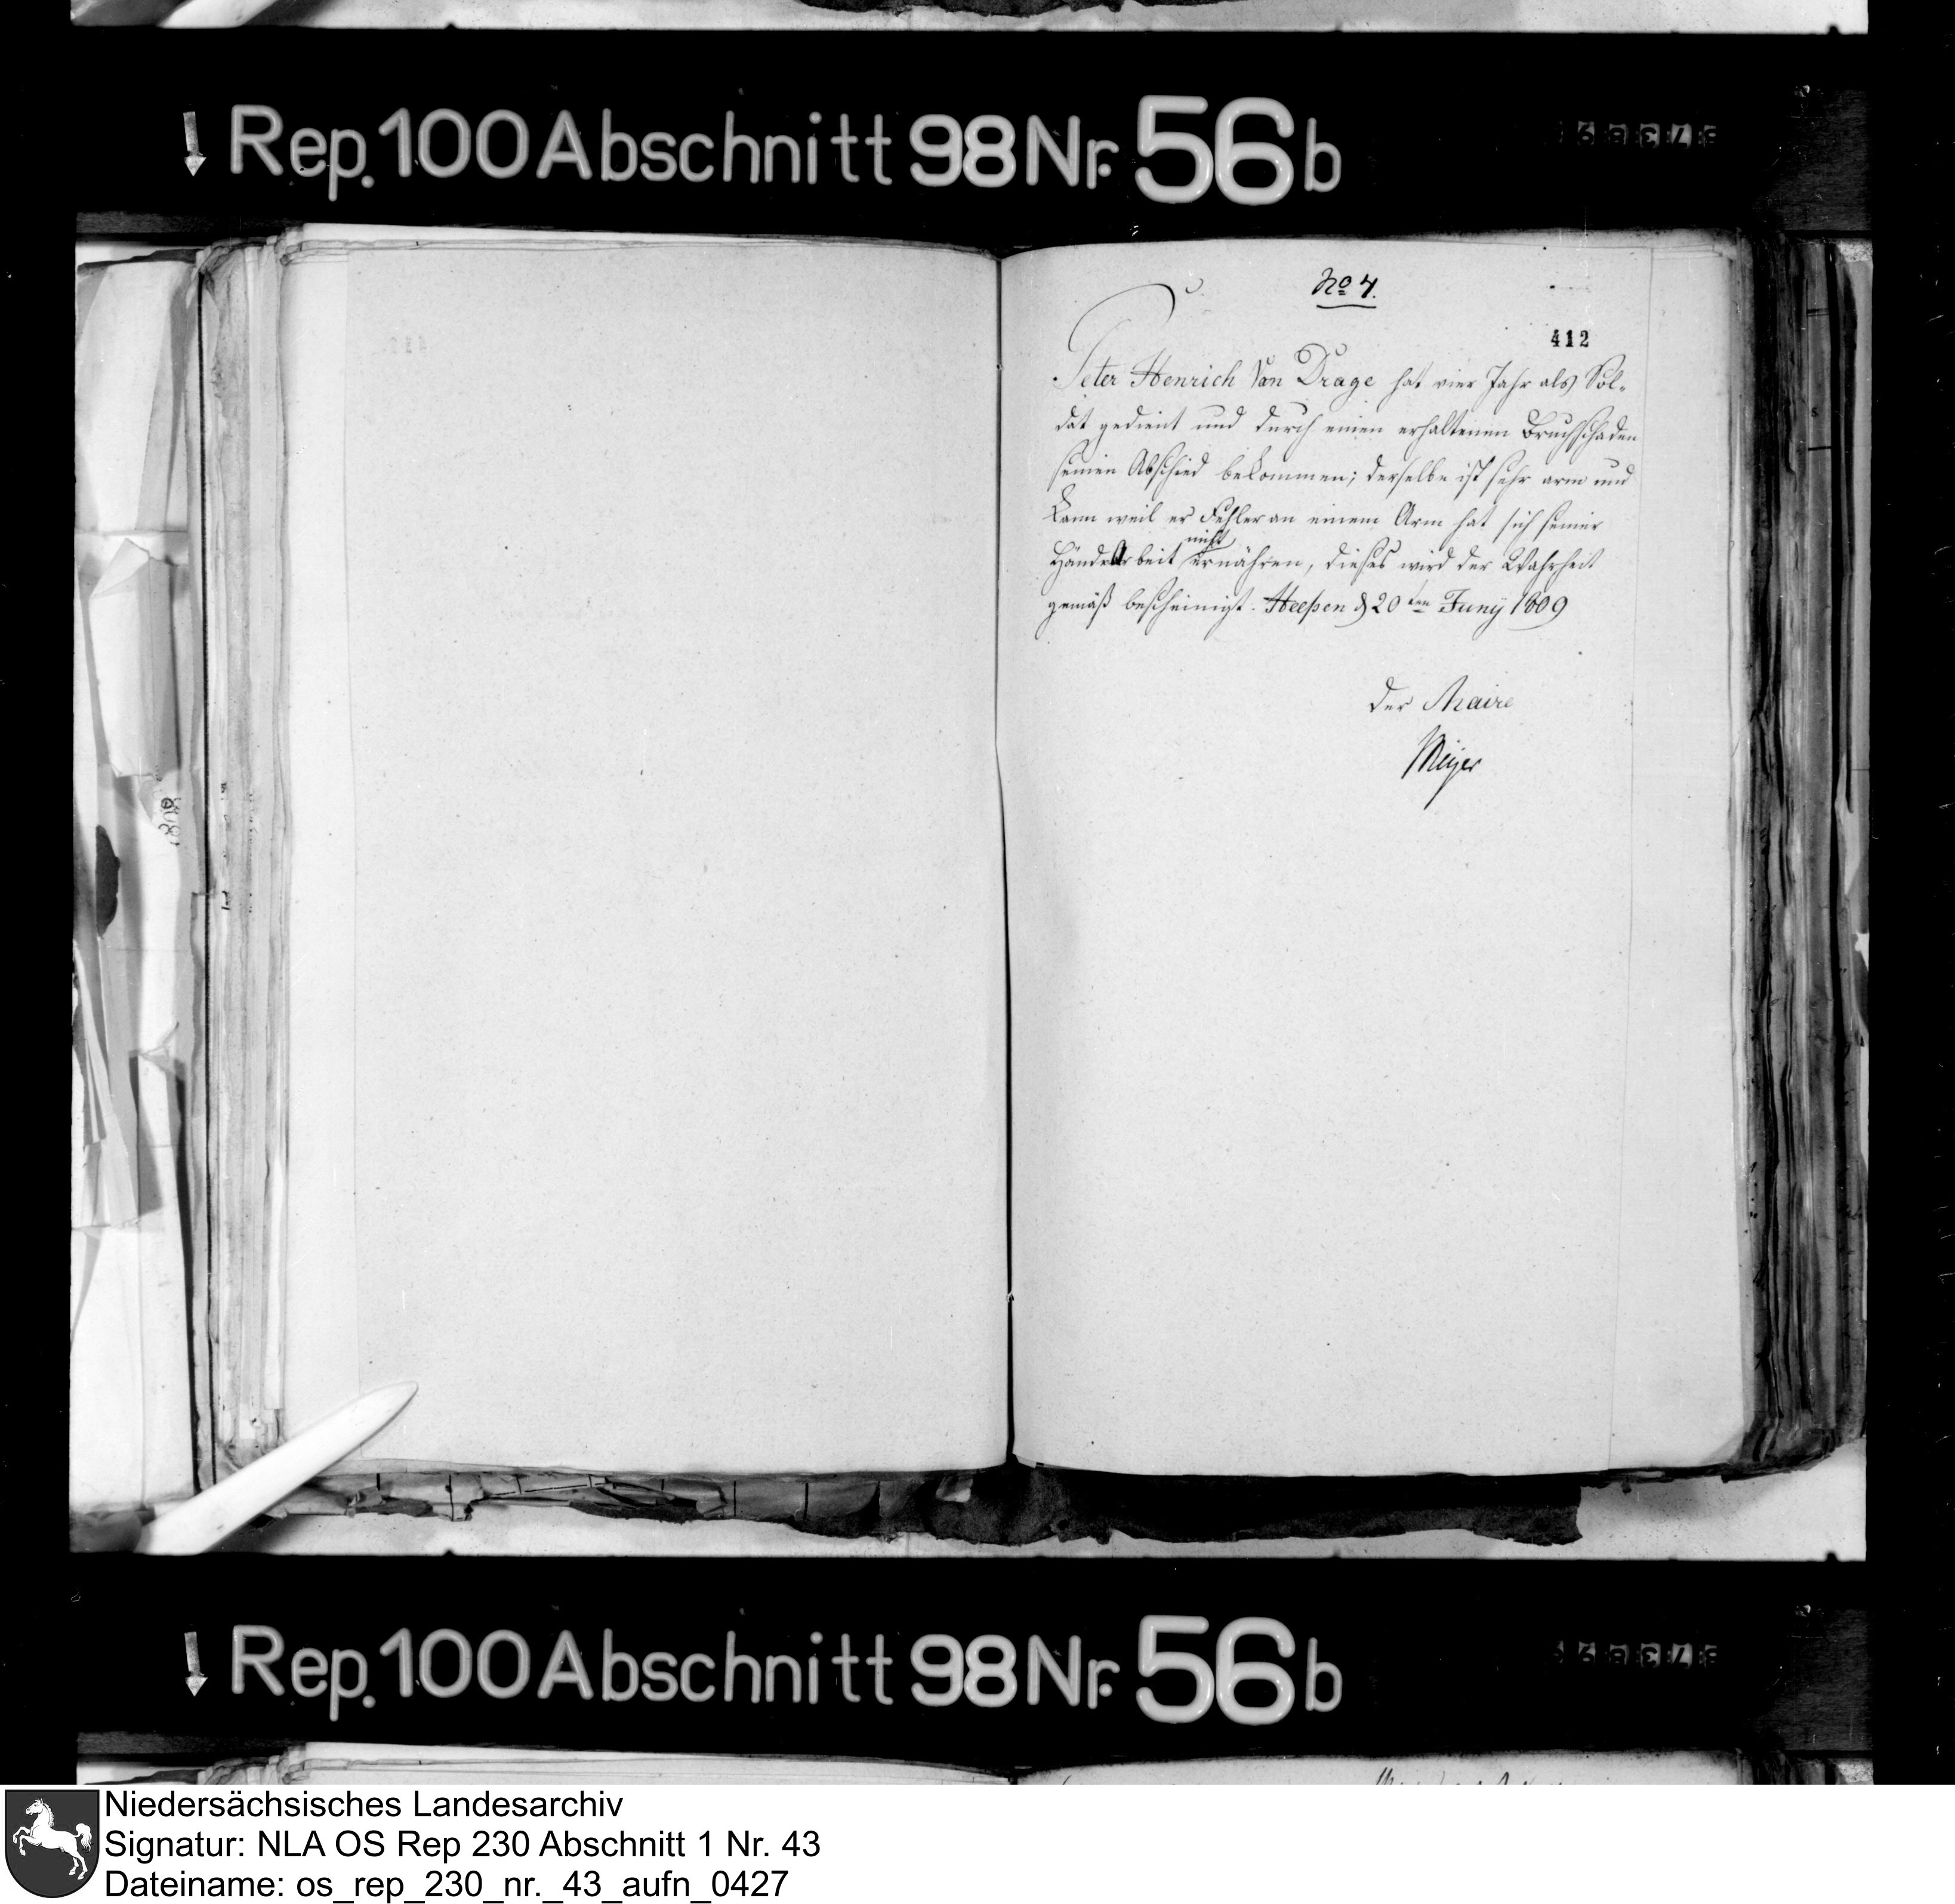 Rep. 100 Abschnitt 98 Nr. 56 b
No 4.
412
Peter Henrich Von Drage hat vier Jahr als Sol-
dat gedient und durch einen erhaltenen Bruchschaden
seinen Abschied bekommen; derselbe ist sehr arm und
kann weil er Fehler an einem Arm hat sich seiner
nicht
HändeArbeit ernähren, dieses wird der Wahrheit
gemäß bescheinigt. Heeßen d 20ten Juny 1809
der Maire
Meyer
Rep. 100 Abschnitt 98 Nr. 56 b
Niedersächsisches Landesarchiv
Signatur: NLA OS Rep 230 Abschnitt 1 Nr. 43
Dateiname: os_rep_230_nr._43_aufn_0427